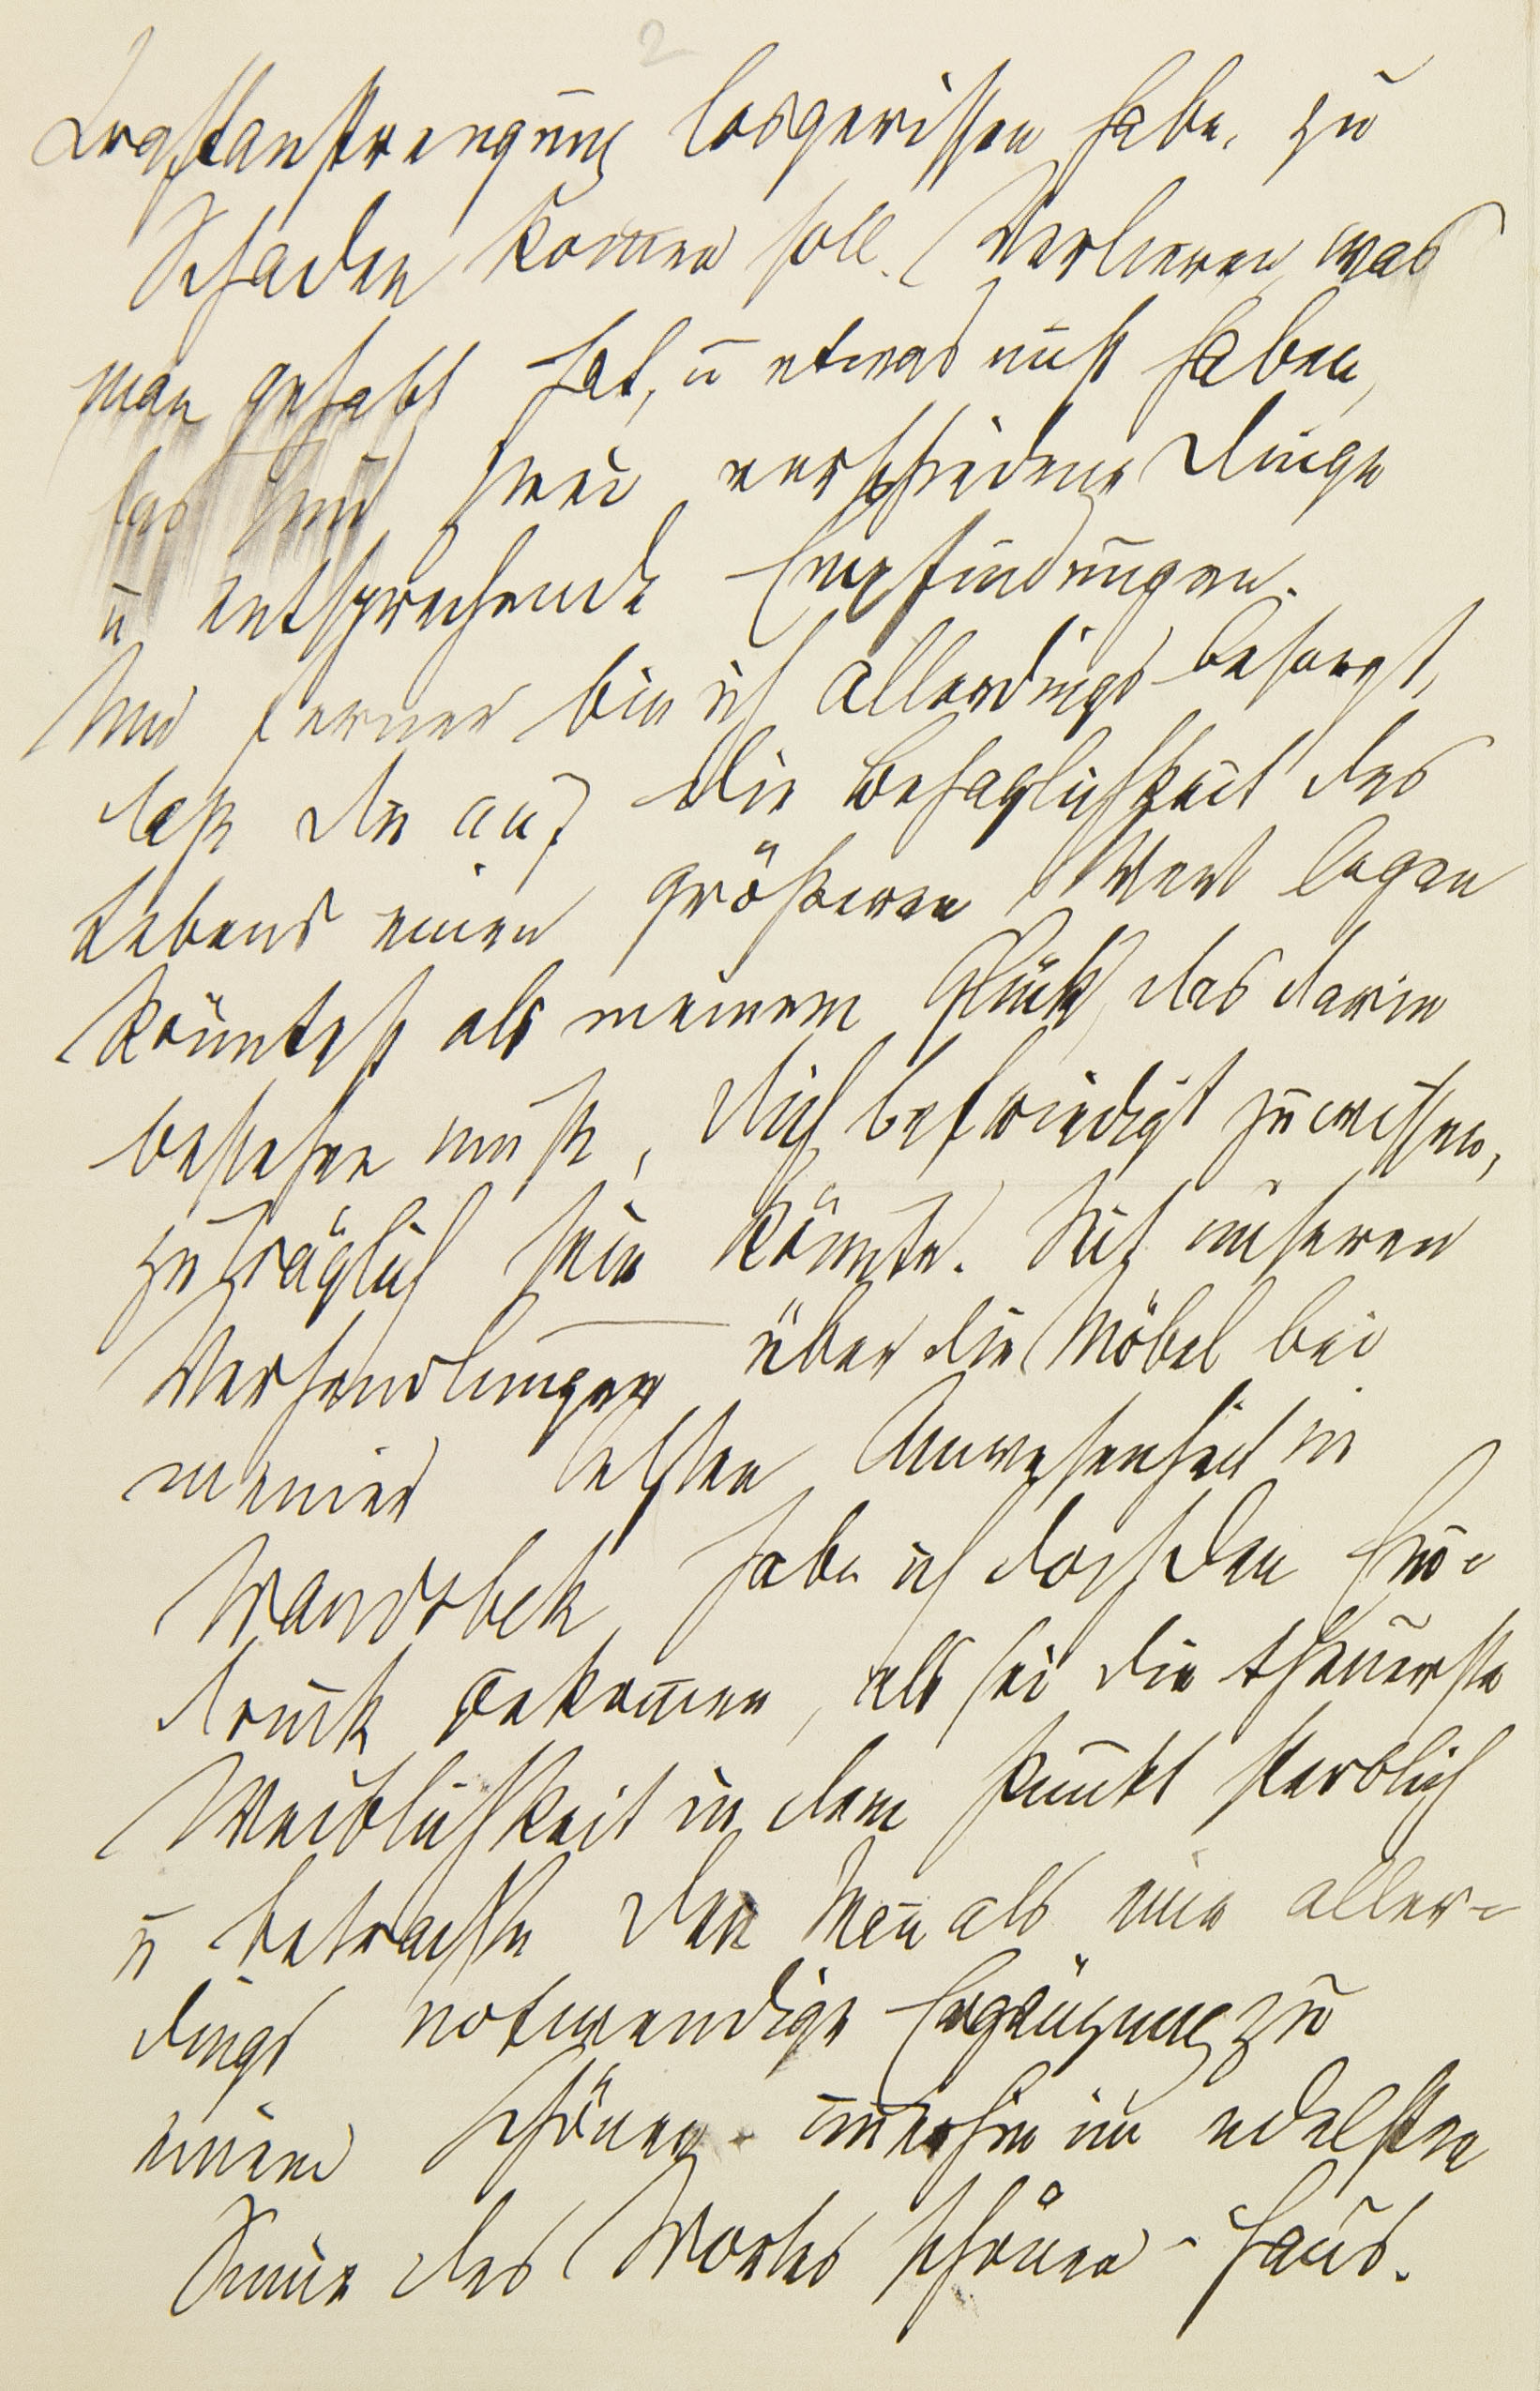 2
Kraftanstrengung losgerissen habe, zu
Schaden kom̄en soll. Verlieren, was
man gehabt hat, u etwas nicht haben,
das sind zwei verschiedene Dinge
u entsprechende Empfindungen.
Und ferner bin ich allerdings besorgt,
daß Du auf die Behaglichkeit des
Lebens einen größeren Wert legen
könntest als meinem Glück, das darin
bestehen muß, Dich befriedigt zu wissen,
zuträglich sein könnte. Seit unseren
Verhandlungen über die Möbel bei
meiner letzten Anwesenheit in
Wandsbek habe ich doch den Ein-
druck bekom̄en, als sei die theuerste
Weiblichkeit in dem Punkt sterblich
u betrachte den Man̄ als eine aller-
dings notwendige Ergänzung zu
einem schönen - im̄erhin im edelsten
Sinne des Wortes schönen - Haus.